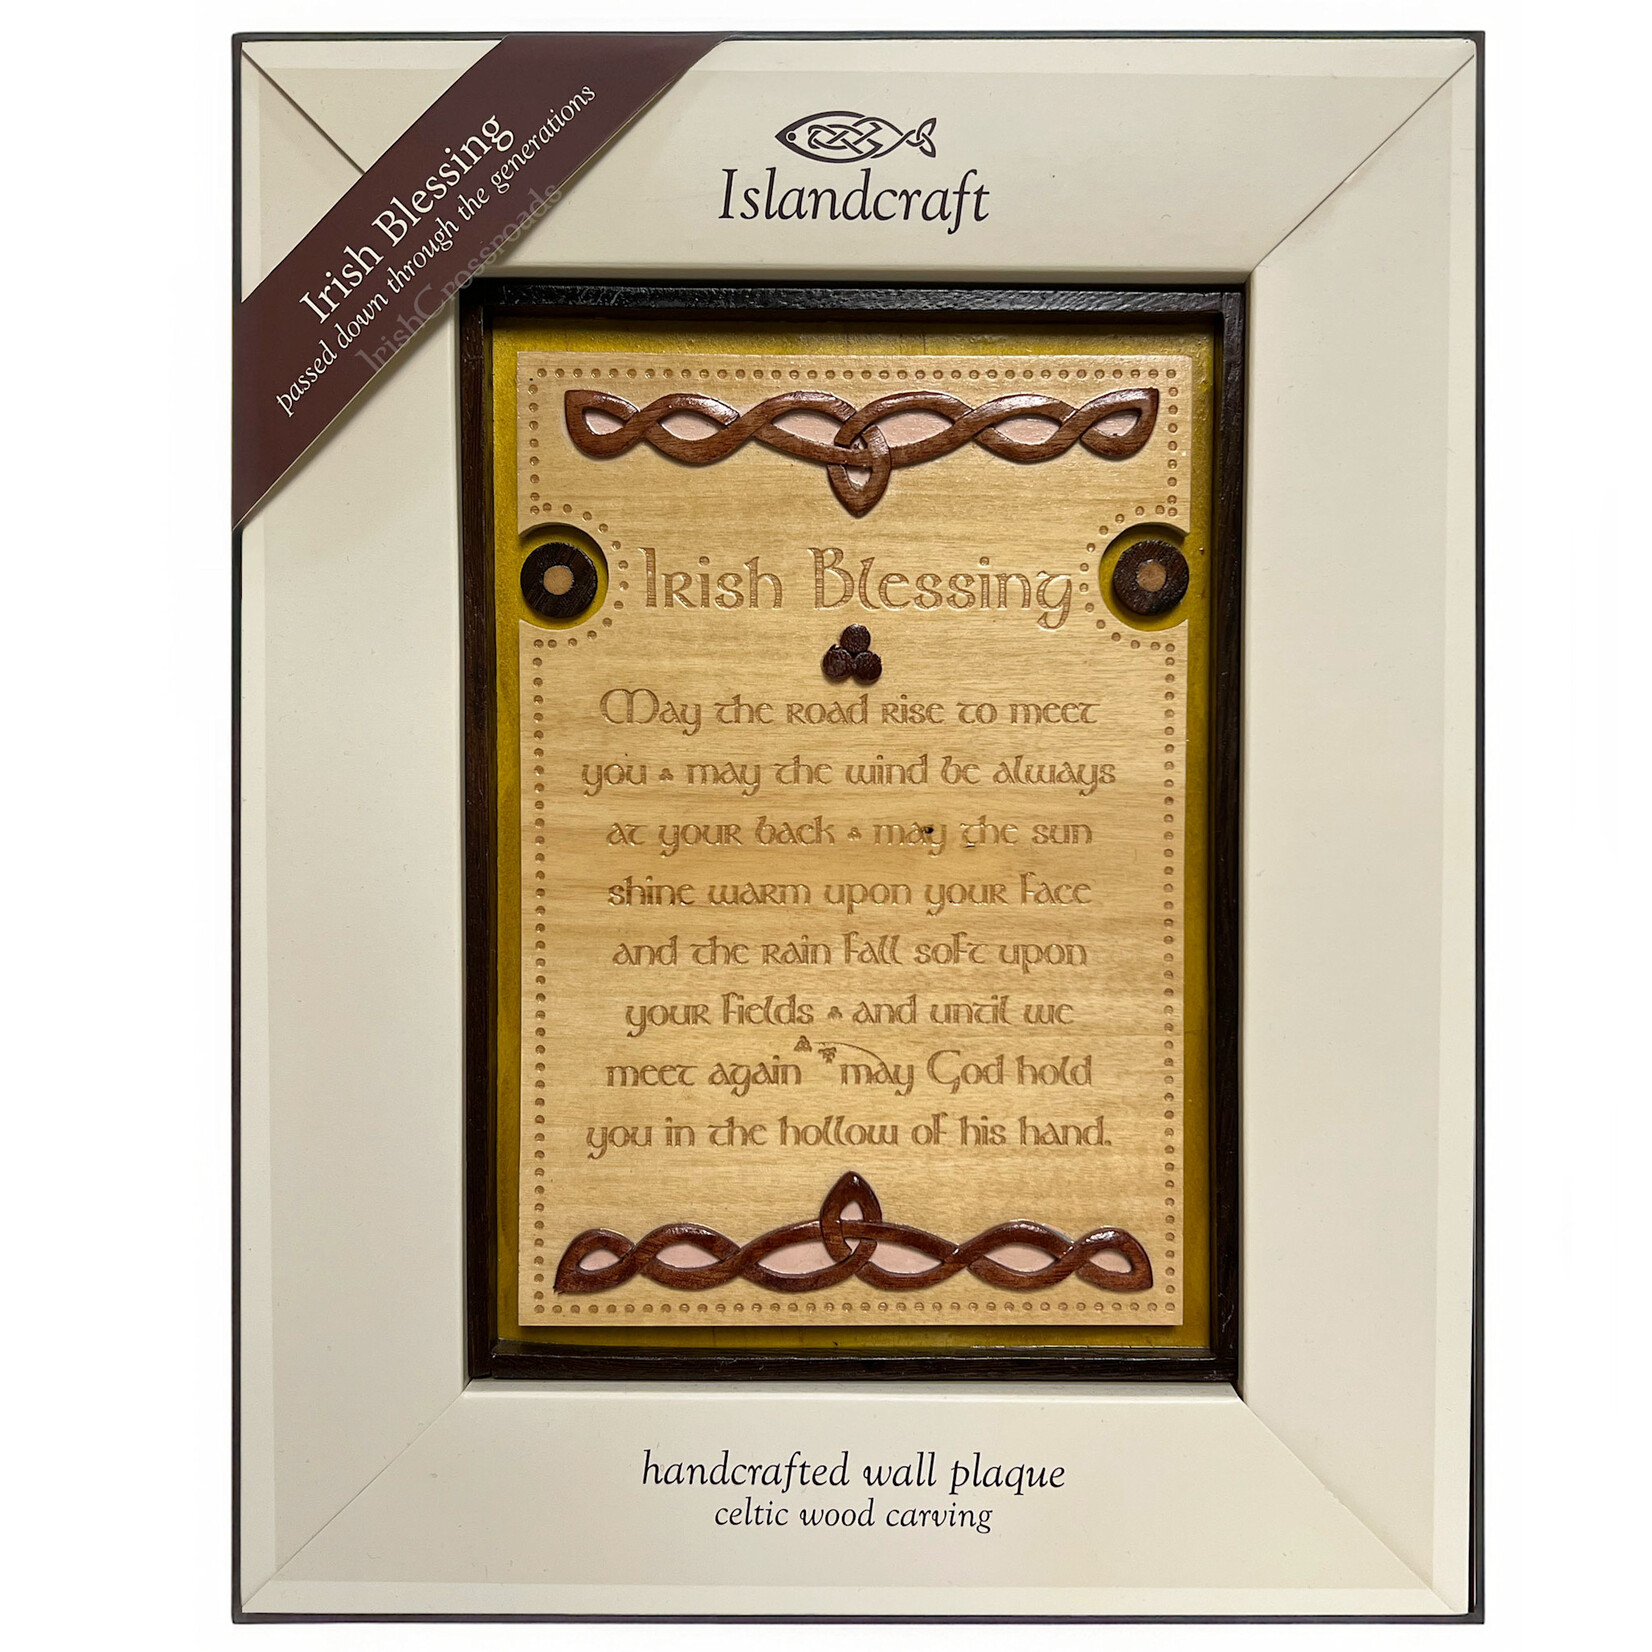 Irish Blessing
passed down through the generations
IrishCrossroads
Islandcraft
Irish Blessing
May the road rise to meet
you may the wind be always
at your back may the sun
shine warm upon your face
and the rain fall soft upon
your fields and until we
meet again may God hold
you in the hollow of his hand.
handcrafted wall plaque
celtic wood carving